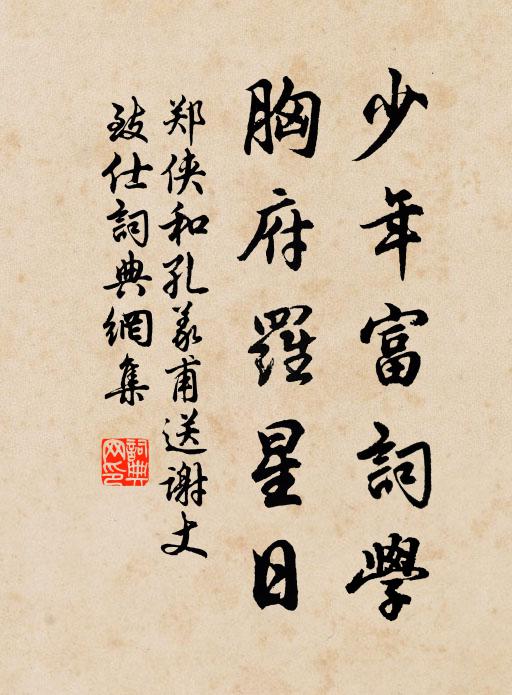 少年富詞學
胸府羅星日
郑侠和孔義甫送谢丈
致仕詞典網集
詞典
网印